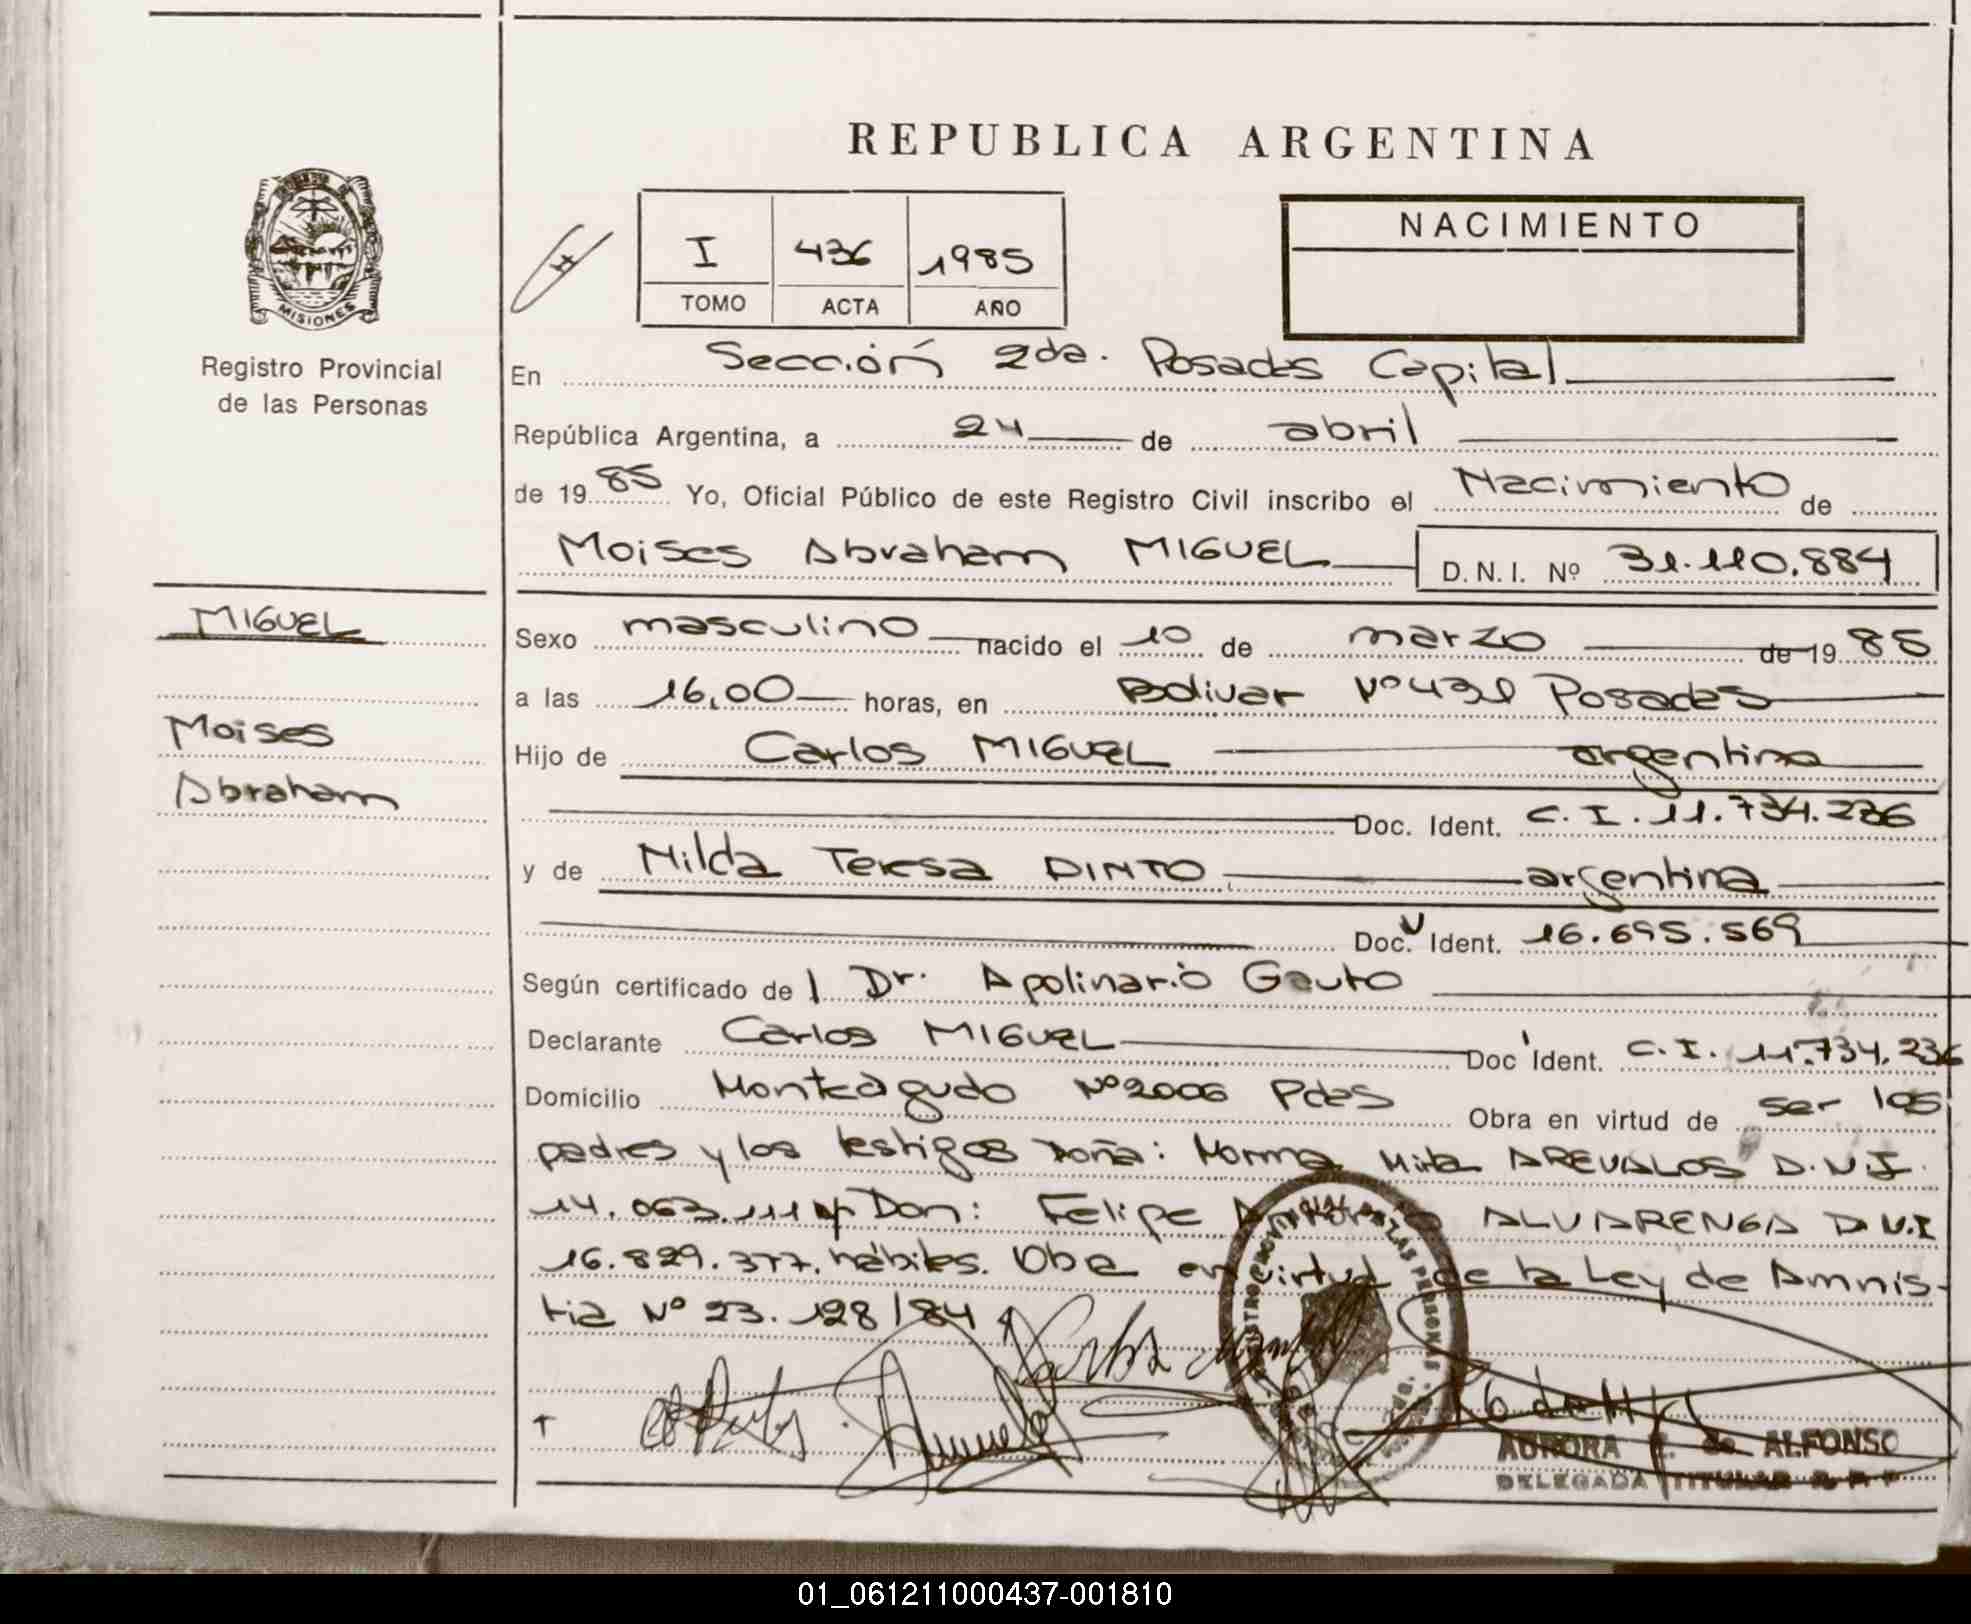 REPUBLICA ARGENTINA
MISIONES
Registro Provincial
de las Personas
H
I 436 1985
TOMO ACTA AÑO
NACIMIENTO
En Sección 2da. Posadas Capital
República Argentina, a 24 de abril
de 1985 Yo, Oficial Público de este Registro Civil inscribo el Nacimiento de
Moises Abraham MIGUEL D.N.I. Nº 31.110.884
MIGUEL
Moises
Abraham
Sexo masculino nacido el 10 de marzo de 1985
a las 16,00 horas, en Bolivar Nº 431 Posadas
Hijo de Carlos MIGUEL argentina
Doc. Ident. C.I. 11.734.236
y de Nilda Teresa PINTO argentina
Doc. Ident. 16.695.569
Según certificado de l Dr. Apolinario Gauto
Declarante Carlos MIGUEL Doc Ident. C.I. 11.734.236
Domicilio Monteagudo Nº 2006 Pdas Obra en virtud de ser los
padres y los testigos Doña: Norma Mirta AREVALOS D.N.I.
14.063.111 y Don: Felipe ALVARENGA D.N.I
16.829.377. hábiles. Oba en virtud de la Ley de Amnis-
tia Nº 23.128/84
AURORA de ALFONSO
DELEGADA TITULAR R.P.P
01_061211000437-001810